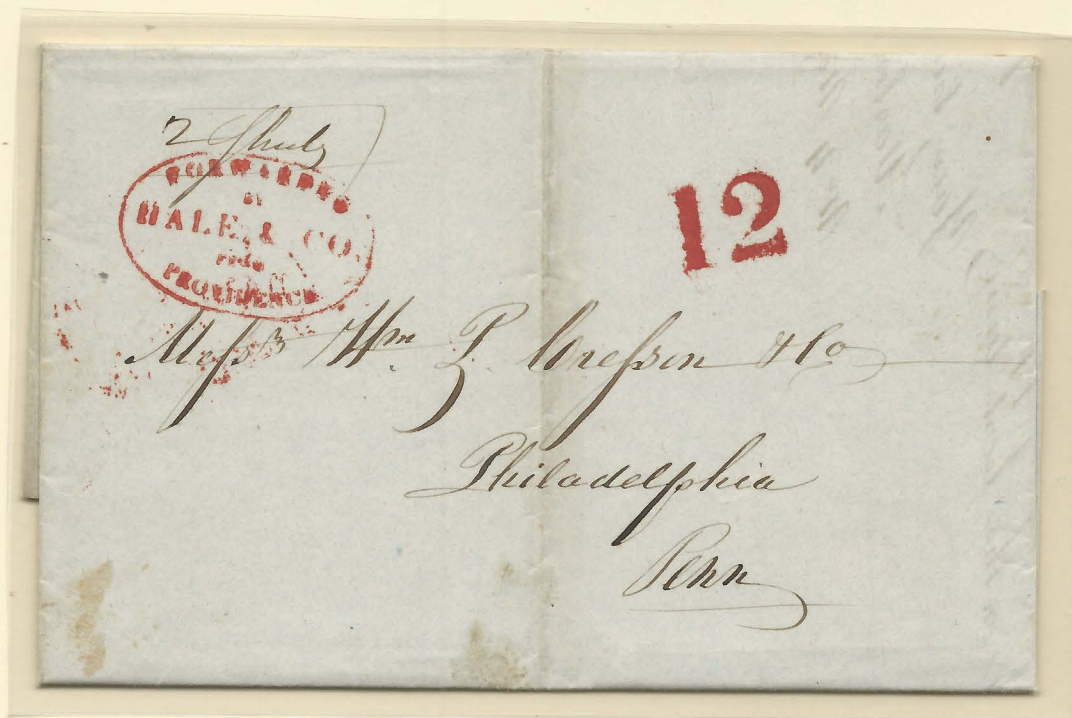 2
FORWARDED
BY
HALE & CO.
from
PROVIDENCE
12
Messrs Wm P. Cresson & Co
Philadelphia
Penn